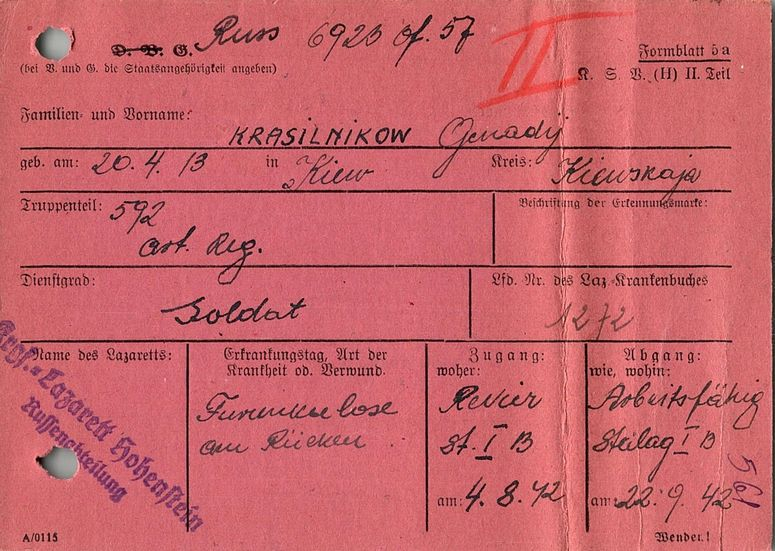 D. B. G. Russ 6923 Of. 57
(bei B. und G. die Staatsangehörigkeit angeben)
II
Formblatt 5a
K. S. V. (H) II. Teil
Familien- und Vorname:
KRASILNIKOW Genadij
geb. am: 20. 4. 13 in Kiew Kreis: Kiewskaja
Truppenteil: 592
art. Reg.
Beschriftung der Erkennungsmarke:
Dienstgrad:
Soldat
Lfd. Nr. des Laz.-Krankenbuches
1272
Name des Lazaretts:
Krgf.-Lazarett Hohenstein
Russenabteilung
Erkrankungstag, Art der
Krankheit od. Verwund.
Furunkulose
am Rücken
Zugang:
woher:
Revier
St. I B
am: 4. 8. 42
Abgang:
wie, wohin:
Arbeitsfähig
Stalag I B
am: 22. 9. 42
A/0115
Wenden!